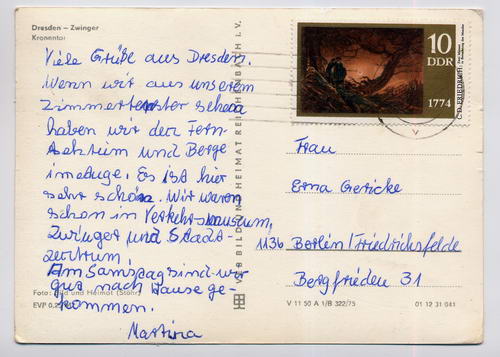 Dresden – Zwinger
Kronentor
Viele Grüße aus Dresden.
Wenn wir aus unserem
Zimmerfenster schen
haben wir den Fern-
sehturm und Berge
im Auge. Es ist hier
sehr schön. Wir waren
schon in Verkehrsmuseum,
Zwinger und Stadt-
zentrum.
Am Samstag sind wir
gut nach Hause ge-
kommen.
Martina
Foto: Bild und Heimat (Stöhr)
EVP 0,20
VEB BILD UND HEIMAT REICHENBACH i. V.
10
DDR
1774
C. D. FRIEDRICH
Frau
Erna Gericke
1136 Berlin/Friedrichsfelde
Bergfrieden 31
V 11 50 A 1/B 322/75
01 12 31 041